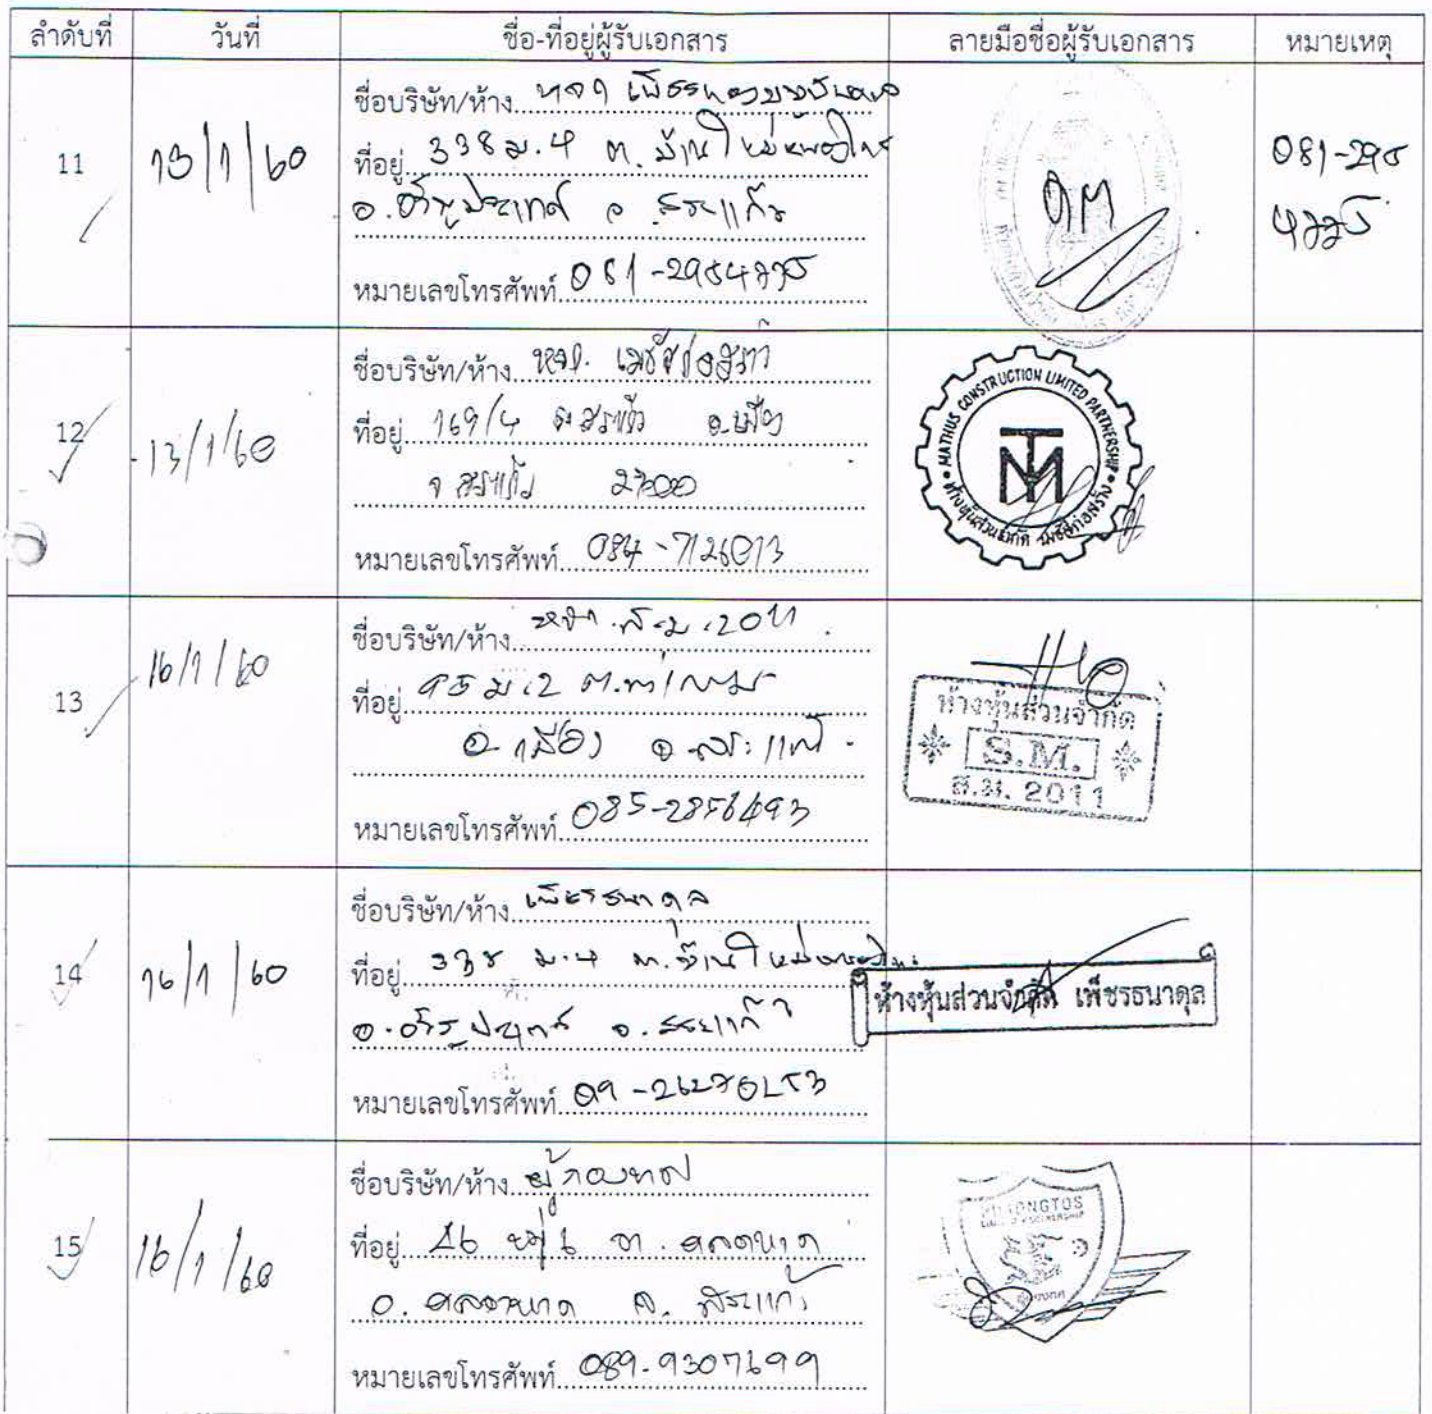 ลำดับที่ วันที่ ชื่อ-ที่อยู่ผู้รับเอกสาร ลายมือชื่อผู้รับเอกสาร หมายเหตุ
11 13/1/60
ชื่อบริษัท/ห้าง
ที่อยู่ 338 ม.4 ต. บ้านใหม่หนองไทร
อ. อรัญประเทศ จ สระแก้ว
หมายเลขโทรศัพท์ 081-298
081-298
12 13/1/60
ชื่อบริษัท/ห้าง หจก. เมธัสก่อสร้าง
ที่อยู่ 169/4 ต สระแก้ว อ.เมือง
จ สระแก้ว 27000
หมายเลขโทรศัพท์ 084-7126013
MATHUS CONSTRUCTION LIMITED PARTNERSHIP
TM
ห้างหุ้นส่วนจำกัด เมธัสก่อสร้าง
13 16/1/60
ชื่อบริษัท/ห้าง หจก. ส.ม. 2011
ที่อยู่ 95 ม.2 ต.ท่าเกษม
อ. เมือง จ. สระแก้ว
หมายเลขโทรศัพท์ 085-2856493
ห้างหุ้นส่วนจำกัด
S.M.
ส.ม. 2011
14 16/1/60
ชื่อบริษัท/ห้าง เพ็ชรธนาดุล
ที่อยู่ 338 ม.4 ต. บ้านใหม่หนองไทร
อ. อรัญประเทศ จ. สระแก้ว
หมายเลขโทรศัพท์
ห้างหุ้นส่วนจำกัด เพ็ชรธนาดุล
15 16/1/60
ชื่อบริษัท/ห้าง
ที่อยู่ 26 หมู่ 6 ต. คลองหาด
อ. คลองหาด จ. สระแก้ว
หมายเลขโทรศัพท์ 089-9307699